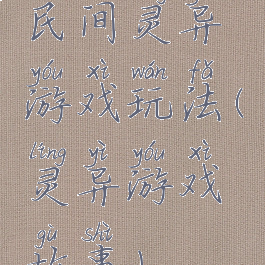 民间灵异
yóu xì wán fǎ
游戏玩法(
líng yì yóu xì
灵异游戏
gù shì
故事)